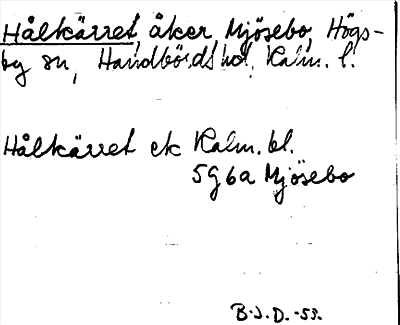 Hålkärret, åker, Mjösebo, Högs-
by sn, Handbörds hd, Kalm. l.
Hålkärret ek Kalm. bl.
5G6a Mjösebo
B.J.D. -59.